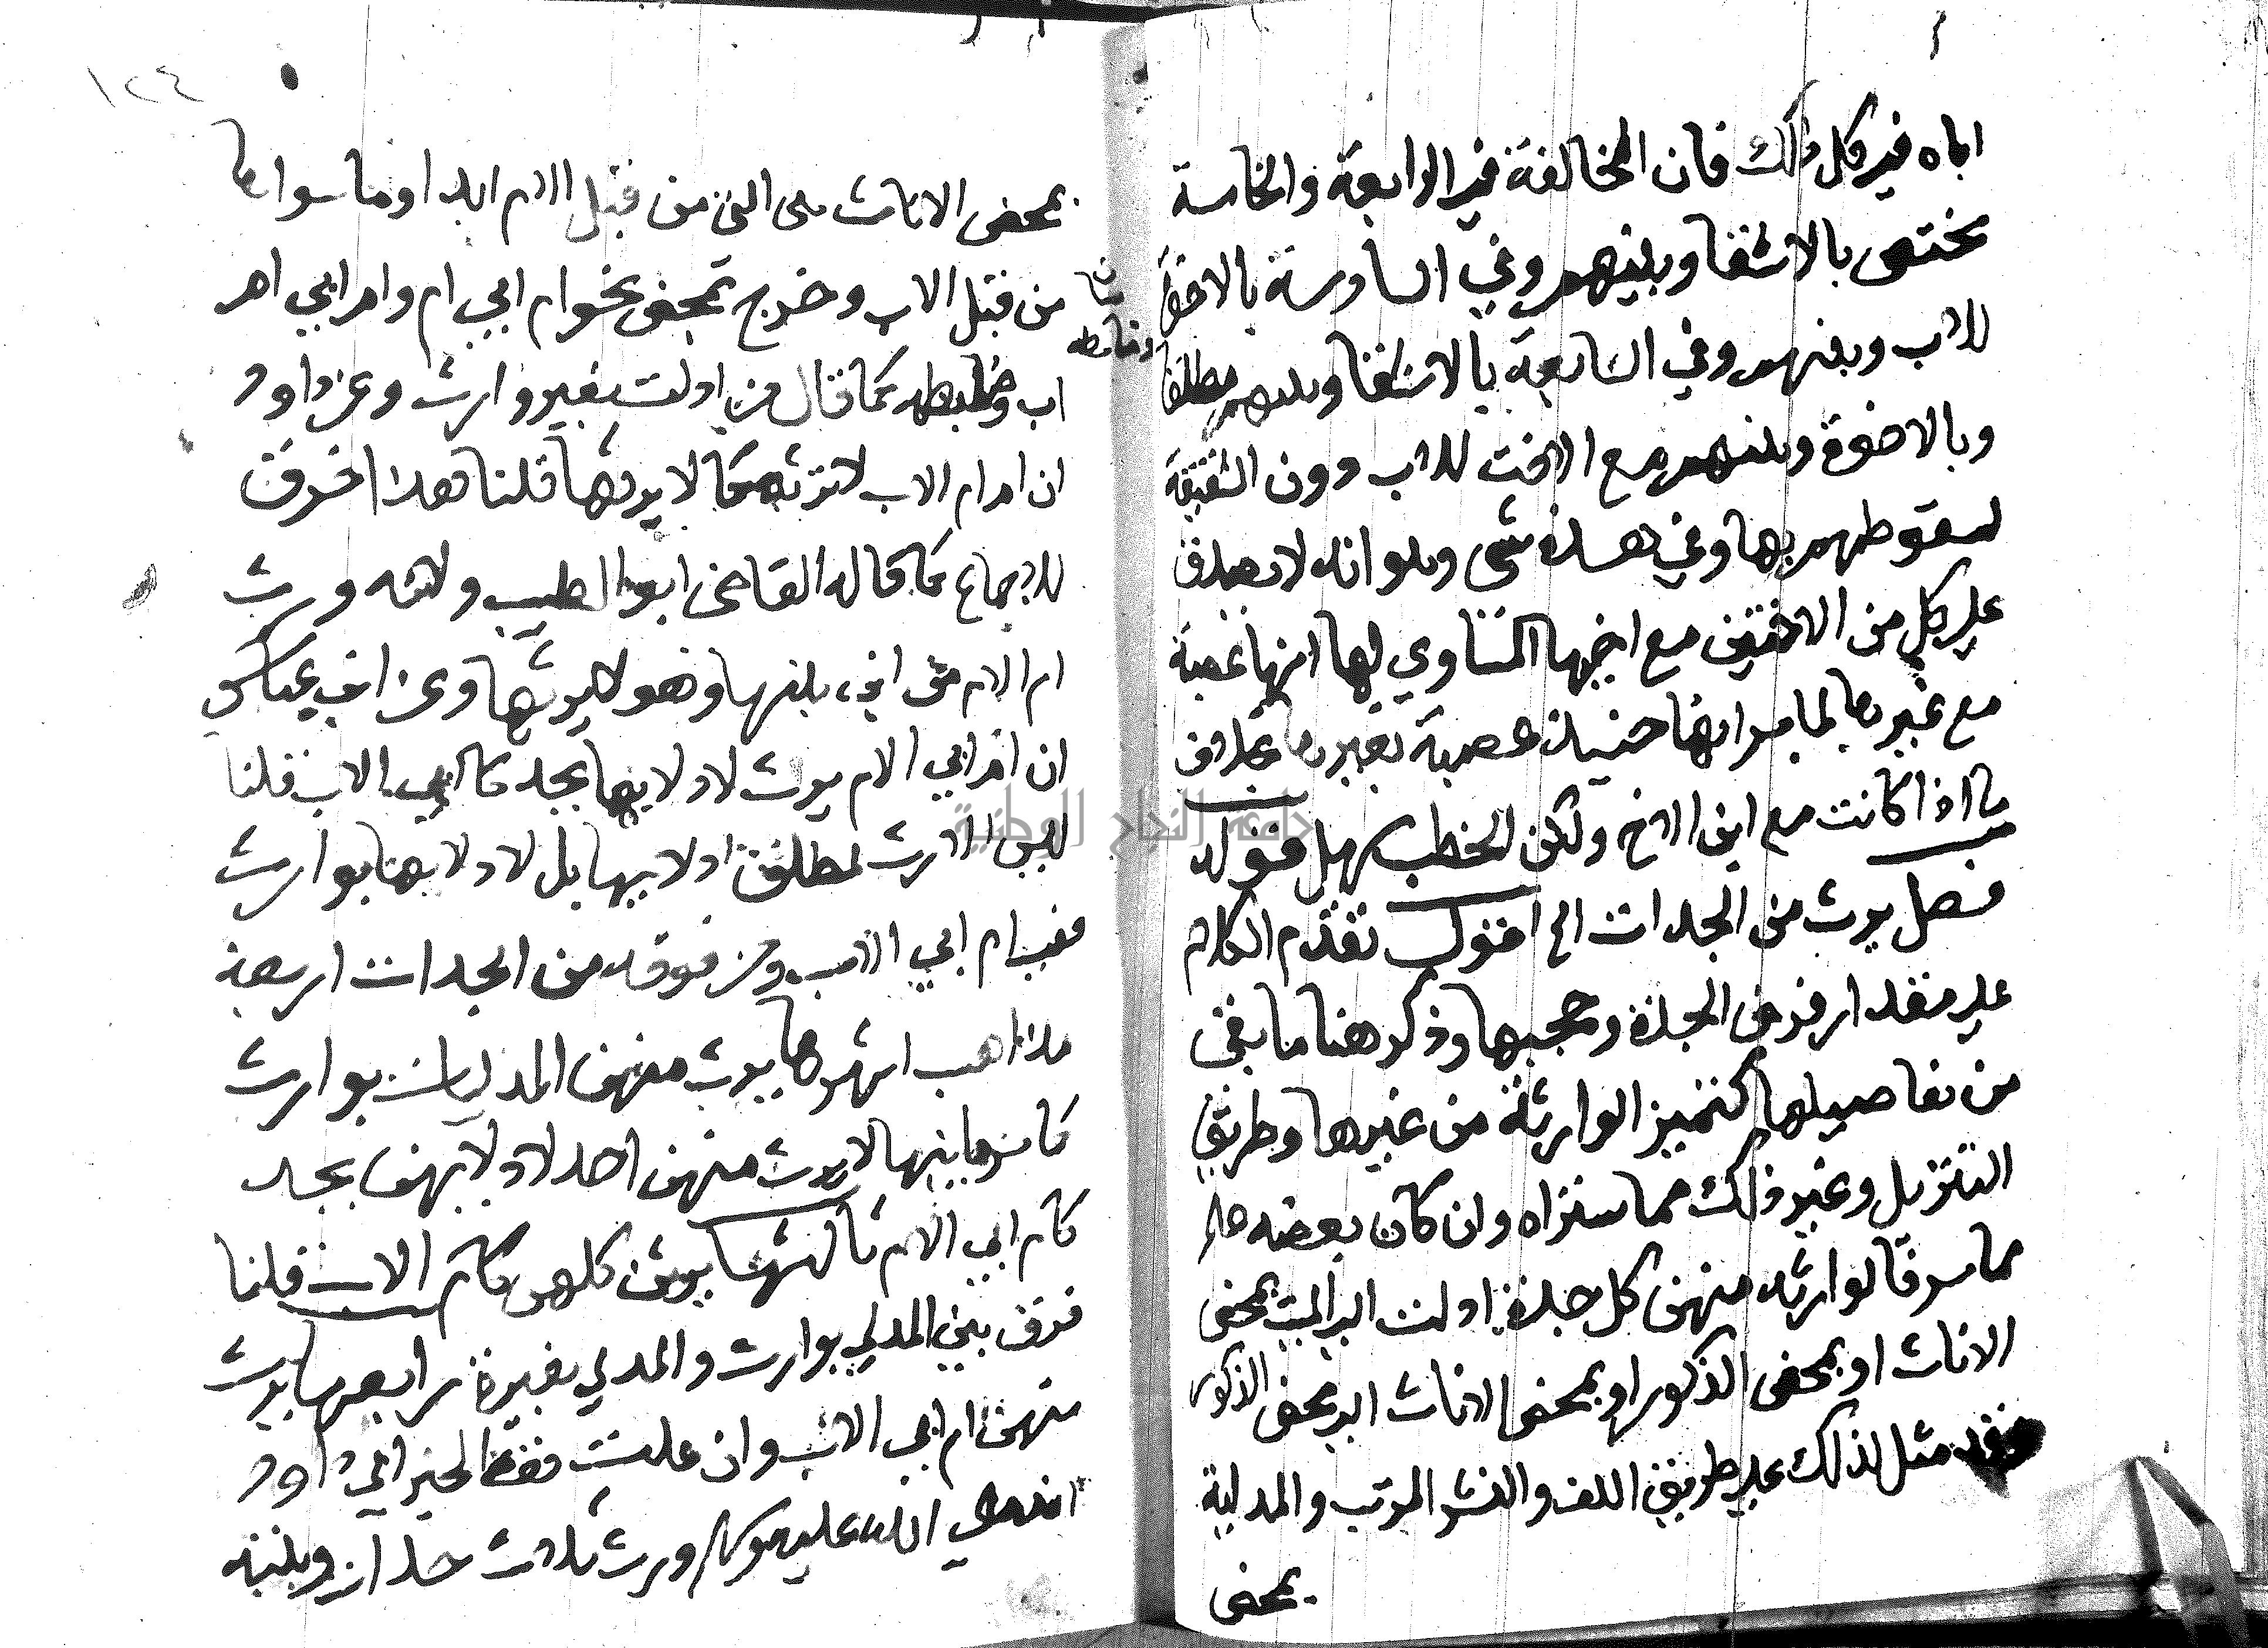 اباه في كل ذلك فان المخالفة في الرابعة والخامسة
يختص بالاشقا وبنيهم وفي السادسة بالاخوة
للاب وبنيهم وفي السابعة بالاشقا وبنيهم مطلقا
وبالاخوة وبنيهم مع الاخت للاب دون الشقيقة
لسقوطهم بها وفي هذه شي وهو انه لا يصدق
على كل من الاختين مع اخيها المساوي لها انها عصبة
مع غيرها لما مر انها حينئذ عصبة بغيرها بخلاف
ما اذا كانت مع ابن الاخ ولكن الخطب سهل قوله
فصل يرث من الجدات الخ اقول تقدم الكلام
على مقدار فرض الجدة وحجبها وذكر هنا ما بقي
من تفاصيلها كتمييز الوارثة من غيرها وطريق
التنزيل وغير ذلك مما ستراه وان كان بعضه علم
مما مر فالوارثه منهن كل جدة ادلت الى الميت بمحض
الاناث او بمحض الذكور او بمحض الاناث الى محض الذكور
وقد مثل لذلك على طريق اللف والنشر المرتب والمدلية
بمحض
١٢٤
بمحض الاناث هي التي من قبل الام ابدا وما سواها
من قبل الاب وخرج بمحض نحو ام ابي ام وام ابي ام
اب وضابطه كما قال من ادلت بغير وارث وعن داود
ان ام ام الاب لا ترثه كما لا يرثها قلنا هذا خرق
للاجماع كما قاله القاضي ابو الطيب ولانه ورث
ام الام من ابن بنتها وهو لا يرثها وعن ابن عباس
ان ام ابي الام يرث لادلايها بجد كابي الاب قلنا
ليس الارث لمطلق ادلايها بل لادلايها بوارث
ففي ام ابي الاب ومن فوقه من الجدات اربعة
مذاهب اشهرها يرث منهن المدليات بوارث
كما مر ثانيها لا يرث منهن احد لادلايهن بجد
كام ابي الام ثالثها يرثن كلهن كام الاب قلنا
فرق بين المدلي بوارث والمدلي بغيره رابعها يرث
منهن ام ابي الاب وان علت فقط لخبر ابي داود
انه صلى الله عليه وسلم ورث ثلاث جدات وبينه